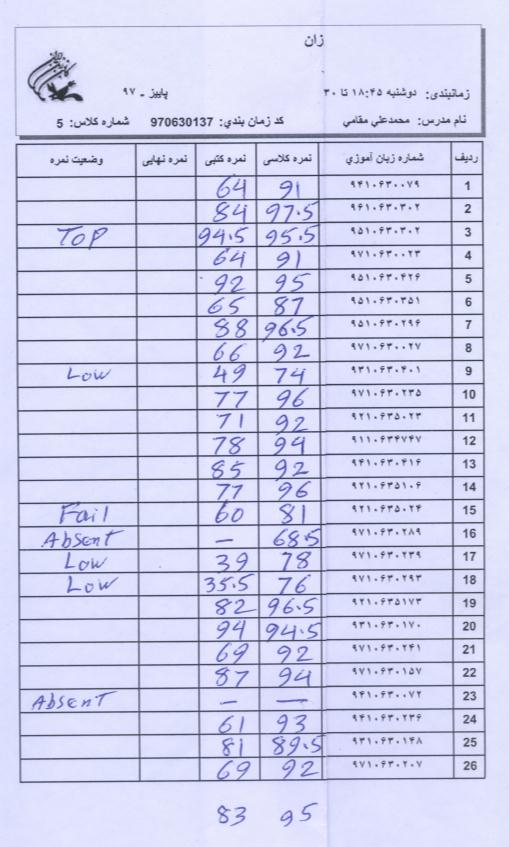 زان
زمانبندی: دوشنبه ۱۸:۴۵ تا ۳۰ پاییز - ۹۷
نام مدرس: محمدعلي مقامي کد زمان بندي: 970630137 شماره کلاس: 5
ردیف شماره زبان آموزي نمره کلاسی نمره کتبی نمره نهایی وضعیت نمره
1 ۹۴۱۰۶۳۰۰۷۹ 91 64
2 ۹۶۱۰۶۳۰۳۰۲ 97.5 84
3 ۹۵۱۰۶۳۰۳۰۲ 95.5 94.5 Top
4 ۹۷۱۰۶۳۰۰۲۳ 91 64
5 ۹۵۱۰۶۳۰۴۲۶ 95 92
6 ۹۵۱۰۶۳۰۳۵۱ 87 65
7 ۹۵۱۰۶۳۰۲۹۶ 96.5 88
8 ۹۷۱۰۶۳۰۰۲۷ 92 66
9 ۹۳۱۰۶۳۰۴۰۱ 74 49 Low
10 ۹۷۱۰۶۳۰۲۳۵ 96 77
11 ۹۲۱۰۶۳۵۰۲۳ 92 71
12 ۹۱۱۰۶۳۴۷۴۷ 94 78
13 ۹۴۱۰۶۳۰۴۱۶ 92 85
14 ۹۲۱۰۶۳۵۱۰۶ 96 77
15 ۹۲۱۰۶۳۵۰۲۴ 81 60 Fail
16 ۹۷۱۰۶۳۰۲۸۹ 68.5 — Absent
17 ۹۷۱۰۶۳۰۲۳۹ 78 39 Low
18 ۹۷۱۰۶۳۰۲۹۳ 76 35.5 Low
19 ۹۲۱۰۶۳۵۱۷۳ 96.5 82
20 ۹۳۱۰۶۳۰۱۷۰ 94.5 94
21 ۹۷۱۰۶۳۰۲۴۱ 92 69
22 ۹۷۱۰۶۳۰۱۵۷ 94 87
23 ۹۴۱۰۶۳۰۰۷۲ — — Absent
24 ۹۴۱۰۶۳۰۲۳۶ 93 61
25 ۹۳۱۰۶۳۰۱۴۸ 89.5 81
26 ۹۷۱۰۶۳۰۲۰۷ 92 69
95 83